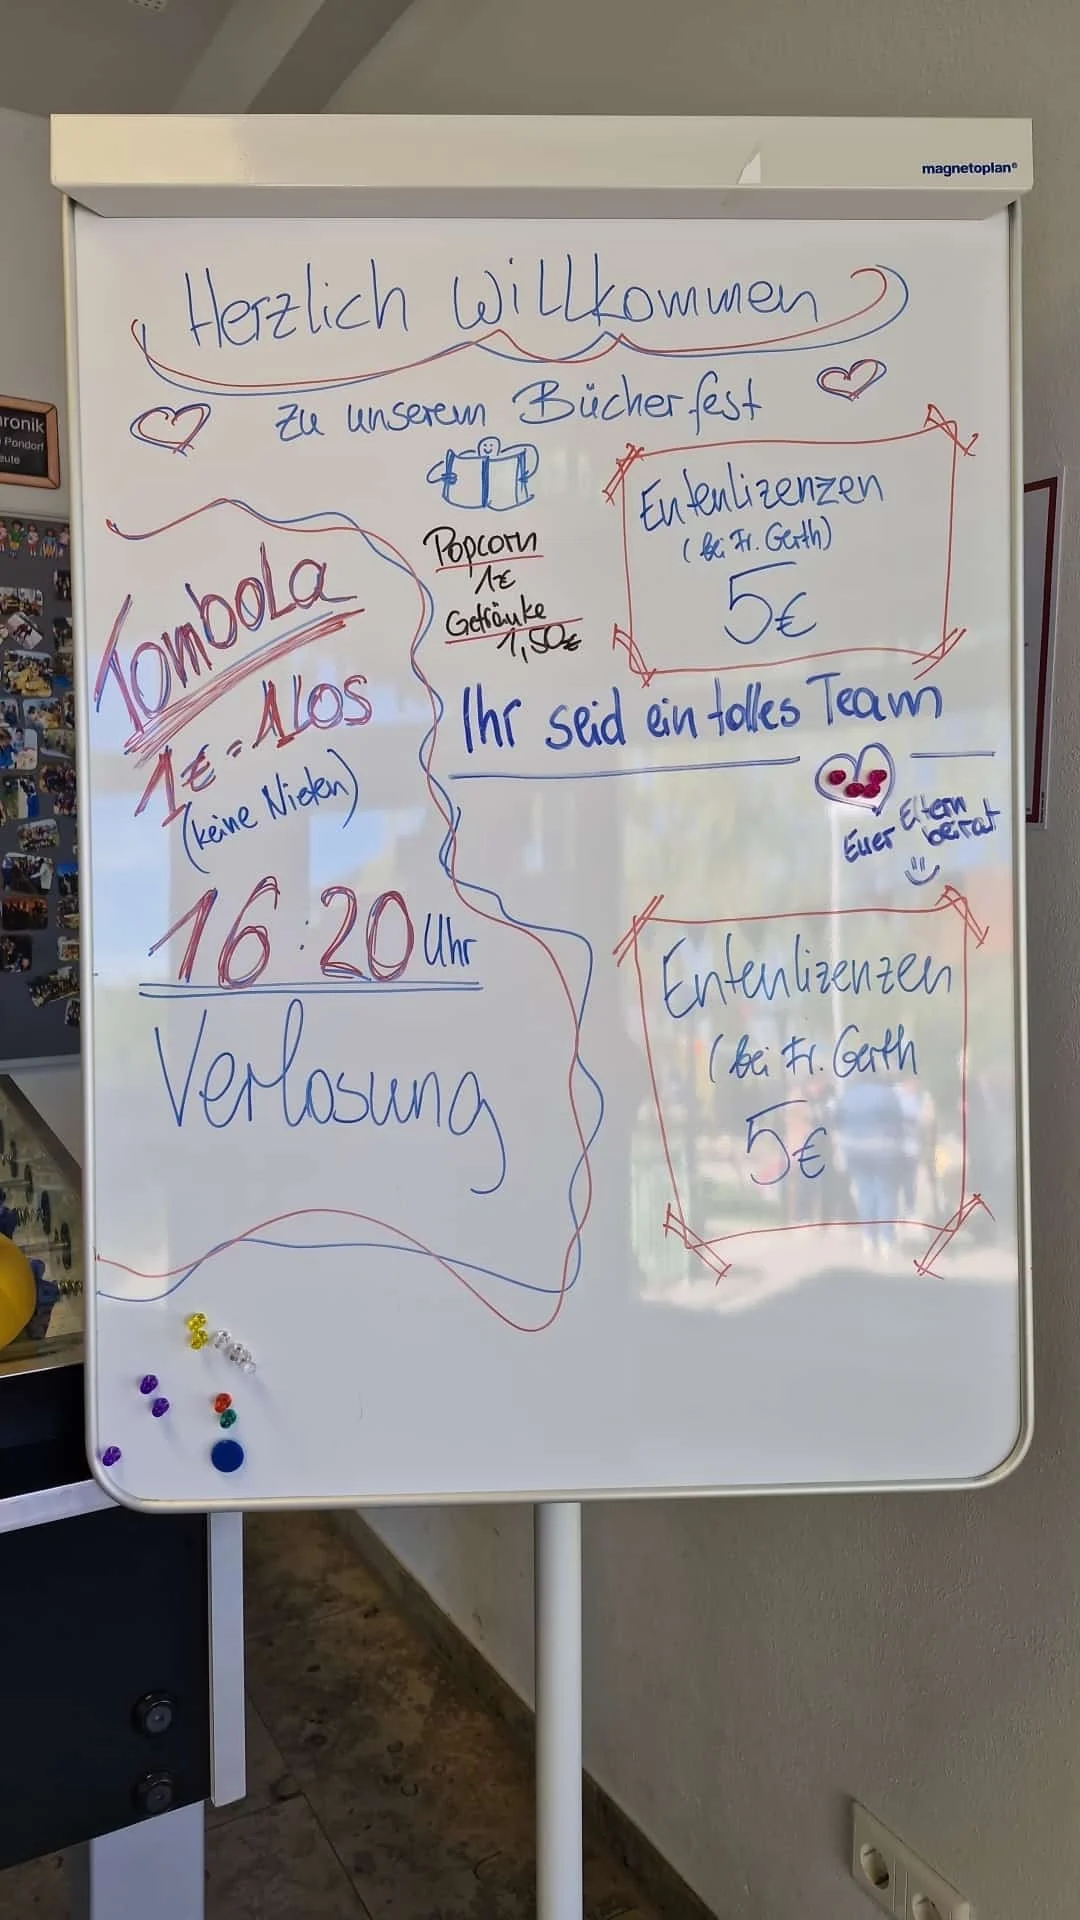 magnetoplan®
Herzlich Willkommen
zu unserem Bücherfest
Tombola
1€ = 1 Los
(keine Nieten)
16:20 Uhr
Verlosung
Popcorn
1€
Getränke
1,50€
Entenlizenzen
(bei Fr. Gerth)
5€
Ihr seid ein tolles Team
Euer Eltern
beirat
Entenlizenzen
(bei Fr. Gerth
5€
ronik
Pondorf
eute